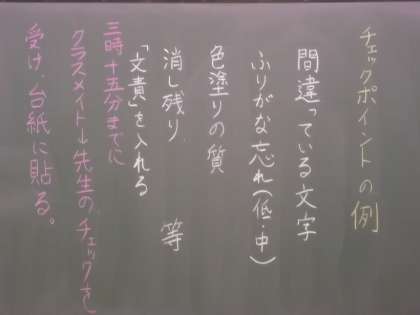 チェックポイントの例
間違っている文字
ふりがな忘れ(低・中)
色塗りの質
消し残り 等
「文責」を入れる
三時十五分までに
クラスメイト→先生のチェックを
受け、台紙に貼る。